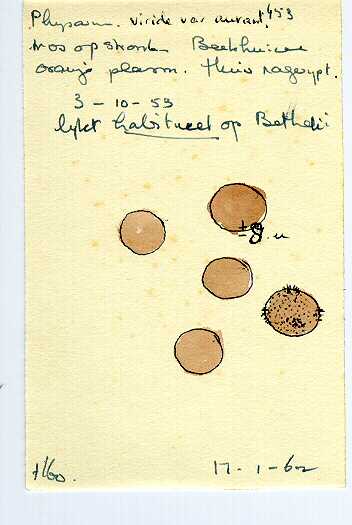 Physarum. viride var aurant. 453
mos op stronk Beekhuizen
oranje plasm. thuis nagerypt.
3 - 10 - 53
lykt habitueel op Bethelii
± 8 u
± 160.
17 - 1 - 62